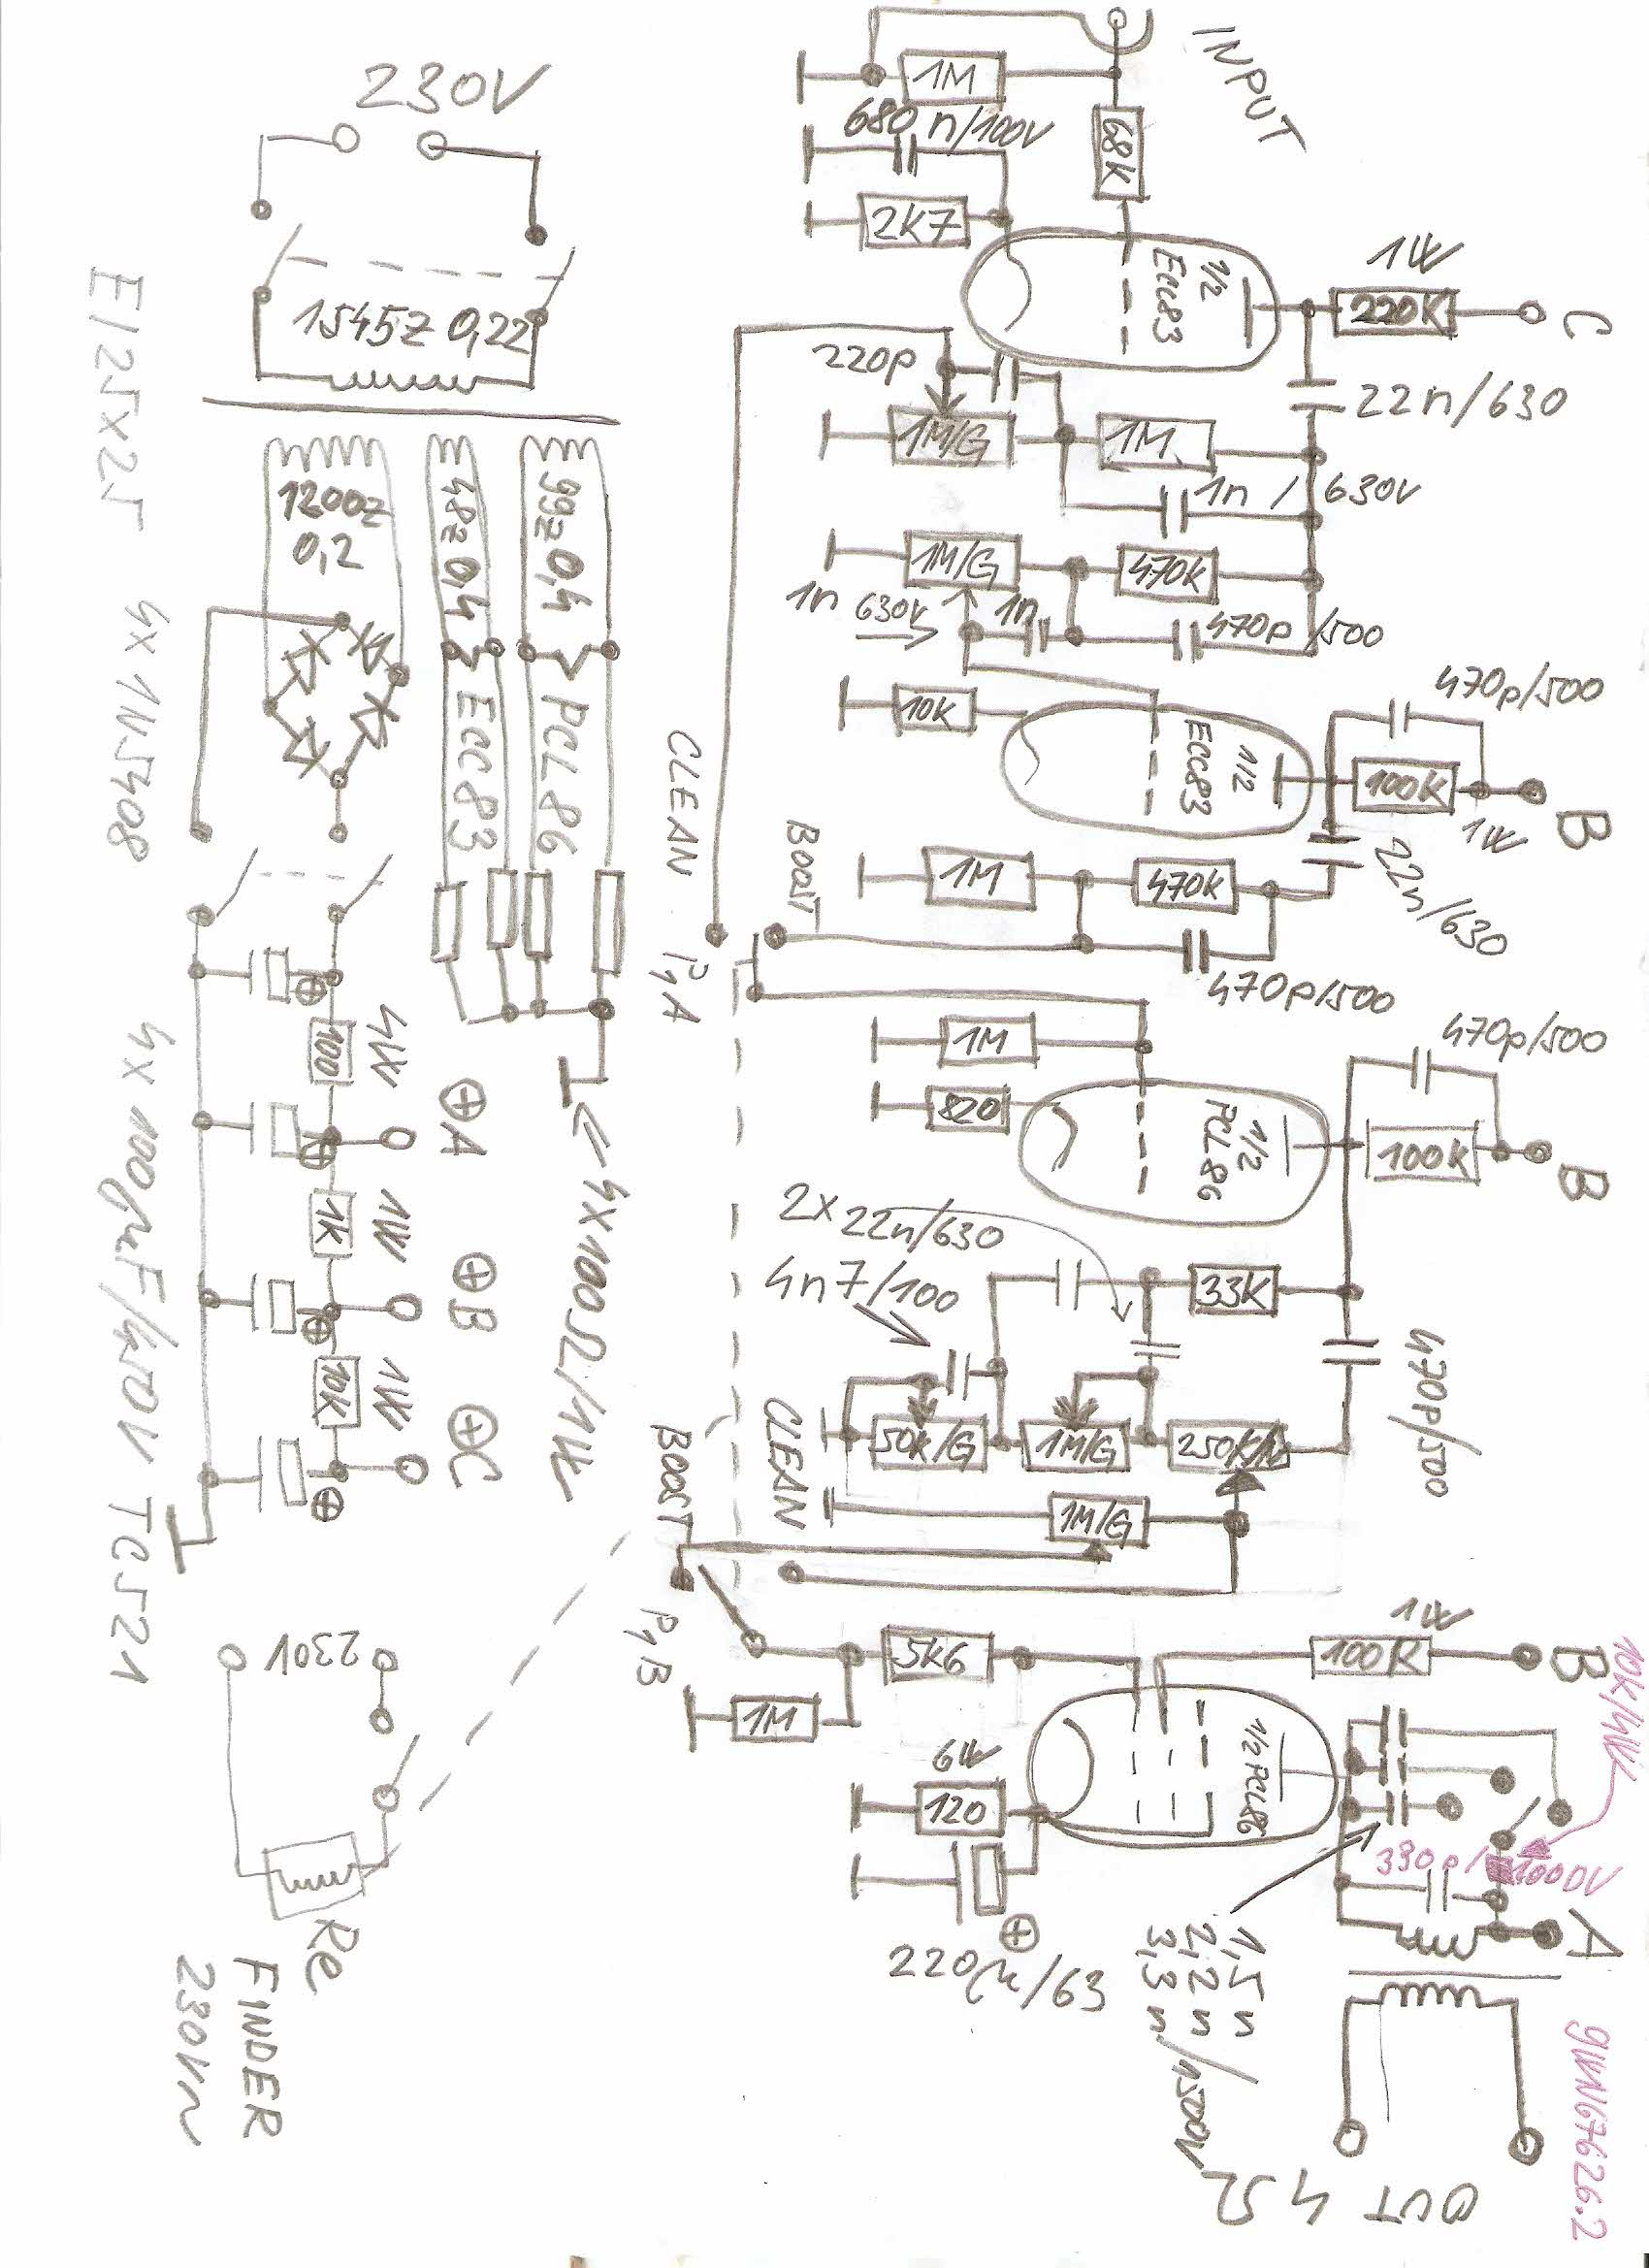 INPUT
1M
680n/100V
68K
2K7
1/2
ECC83
1W
220K
C
22n/630
220p
1M/G
1M
1n / 630V
1M/G
470K
1n
630V
1n
470p/500
10K
1/2
ECC83
470p/500
100K
1W
B
22n/630
1M
470K
470p/500
CLEAN
BOOST
P1A
1M
820
1/2
PCL86
470p/500
100K
B
2x22n/630
4n7/100
33K
470p/500
50K/G
1M/G
250K/A
1M/G
CLEAN
BOOST
P1B
5K6
1M
6W
120
220µ/63
1/2 PCL86
1W
100R
B
10K/4W
330p/1000V
A
1,5n
2,2n
3,3n/1500V
OUT 4Ω
gwN67626.2
230V
1545z 0,22
1200z
0,2
48z 0,4
99z 0,4
ECC83
PCL86
EI 25x25
4x 1N5408
4x100Ω/1W
4W
100
⊕A
1W
1K
⊕B
1W
10K
⊕C
4x100µF/450V TC521
230V
Re
FINDER
230V~